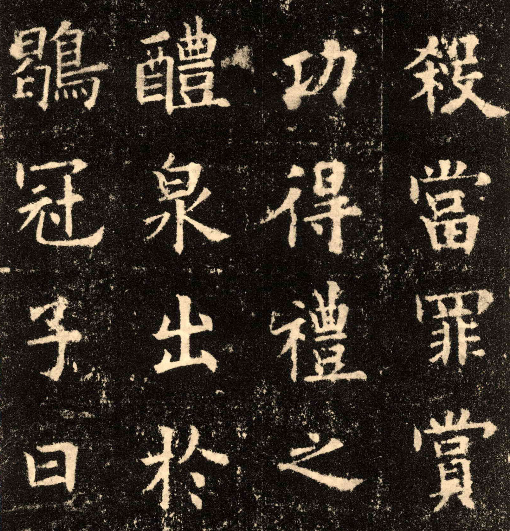 殺當罪賞
功得禮之
醴泉出於
鶡冠子曰